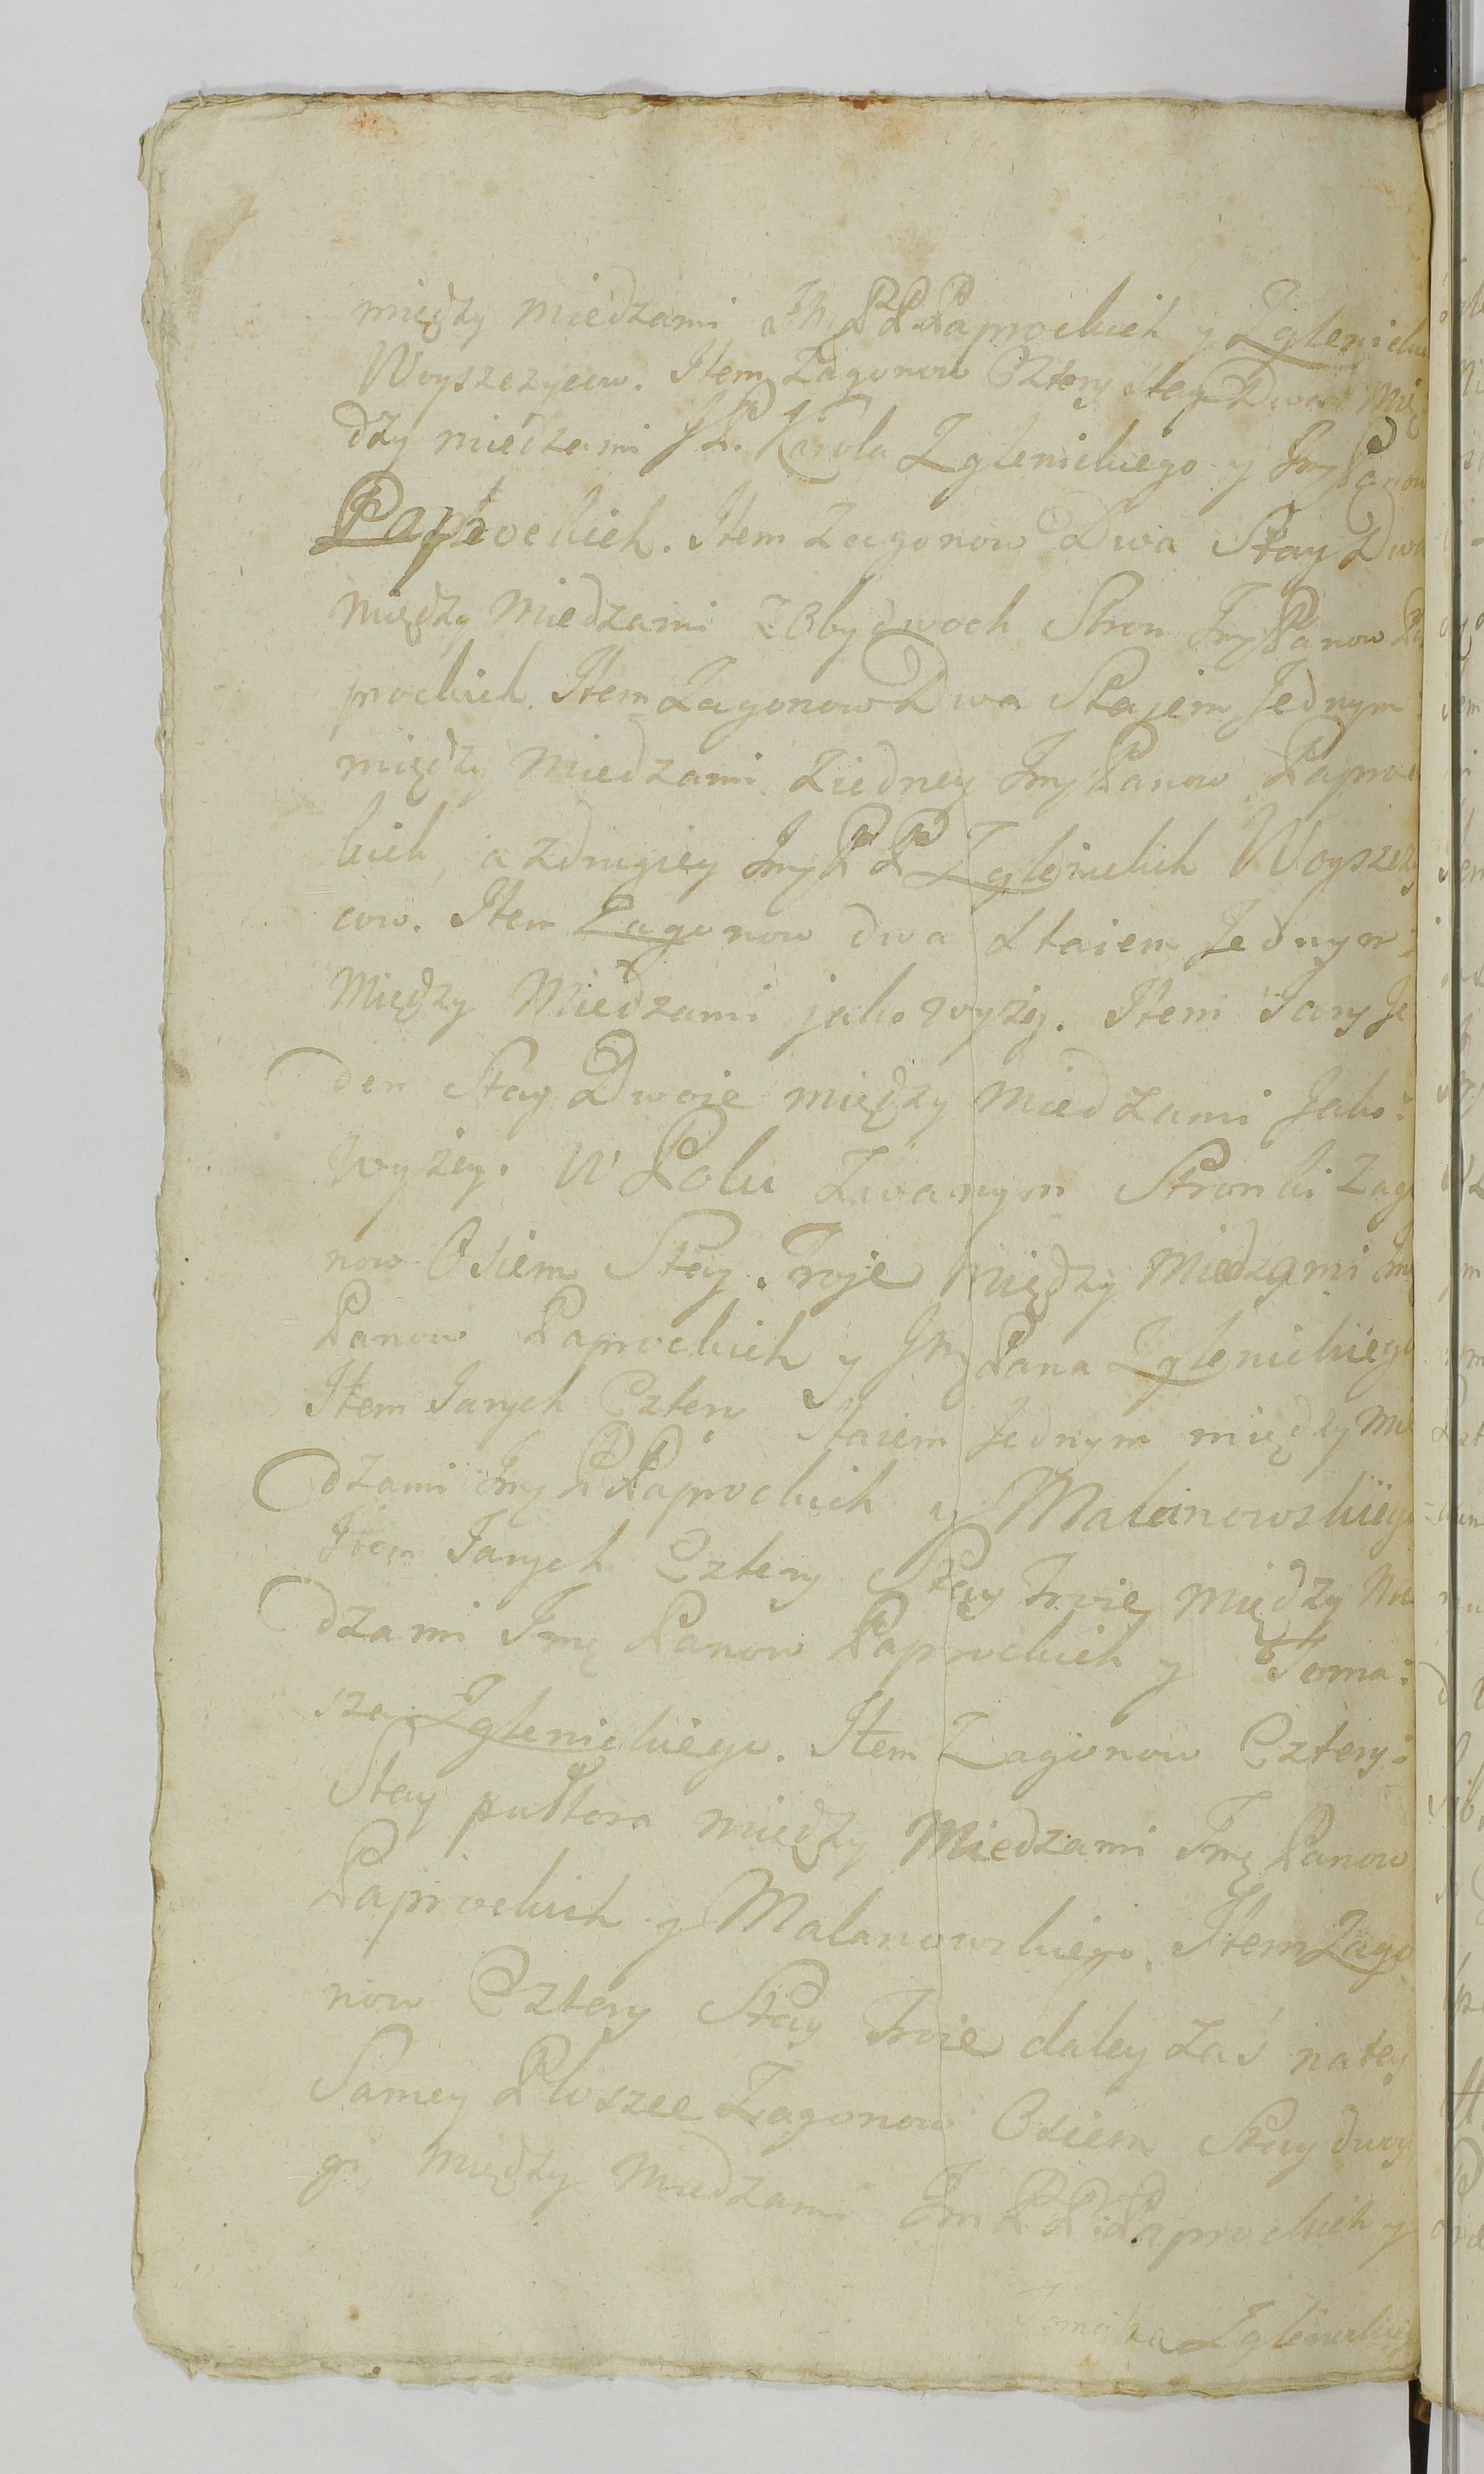 między miedzami Jm PP. Paprockich y Zglenickich
Woyszczycow. Item Zagonow Cztery Stay Dwoie mię
dzy miedzami JP. Karola Zglenickiego y Jmę Panow
Paprockich. Item Zagonow Dwa Stay Dwa
między Miedzami z Obydwoch Stron Jmę Panow Pa
prockich. Item Zagonow Dwa Stajem Jednym
między Miedzami ziedney Jmę Panow Paproc
kich, a zdrugiey Jmę PP Zglenickich Woyszczy
cow. Item Zagonow dwa Staiem Jednym:
Między Miedzami jako wyżey. Item Jary Je
den Stay Dwoie między Miedzami Jako:
wyżey. W Polu Zwanym Stronki Zago
now Osiem Stay Troje między Miedzami Jmę
Panow Paprockich y Jmę Pana Zglenickiego
Item Jarych Cztery Staiem Jednym między Mie
dzami Jmę PPaprockich y Malanowskiego
Item Jarych Cztery Stay Troie Między Mie
dzami Jmę Panow Paprockich y Toma:
sza Zglenickiego. Item Zagonow Cztery:
Stay pułtora między Miedzami Jmę Panow
Paprockich y Malanowskiego. Item Zago
now Cztery Stay Troie daley zaś na tey
Samey Płoszce Zagonow Osiem Stay dwoy
gi między Miedzami Jm PP. Paprockich y
Tomasza Zglenickiego